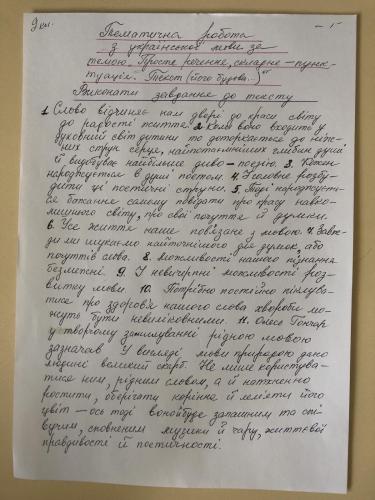 9 кл.
Тематична робота
з української мови за
темою. Просте речення, складне - пунк-
туація. Текст (його будова...)
Виконати завдання до тексту
1. Слово відчиняє нам двері до краси світу
до радості життя. 2. Коли воно входить у
духовний світ дитини то доторкається до ніж-
них струн серця, найпотаємніших глибин душі
й відбуває найбільше диво - поезію. 3. Кожен
народжується в душі поетом. 4. Головне розбу-
дити ці поетичні струни. 5. Тоді народжуєть-
ся бажання самому повідати про красу навко-
лишнього світу, про свої почуття й думки.
6. Усе життя наше повязане з мовою. 7. Завж-
ди ми шукаємо найточнішого для думок, або
почуттів слова. 8. Можливості нашого пізнання
безмежні. 9. Й невичерпні можливості роз-
витку мови 10. Потрібно постійно піклува-
тися про здоров'я нашого слова хвороби мо-
жуть бути невиліковними. 11. Олесь Гончар
у творчому замилуванні рідною мовою
зазначав У вигляді мови природою дано
людині великий скарб. Не лише користува-
тися ним, рідним словом, а й натхненно
ростити, оберігати коріння й леліяти його
цвіт - ось тоді воно й буде запашним то спі-
вучим, сповненим музики й чару, життєвої
правдивості й поетичності.